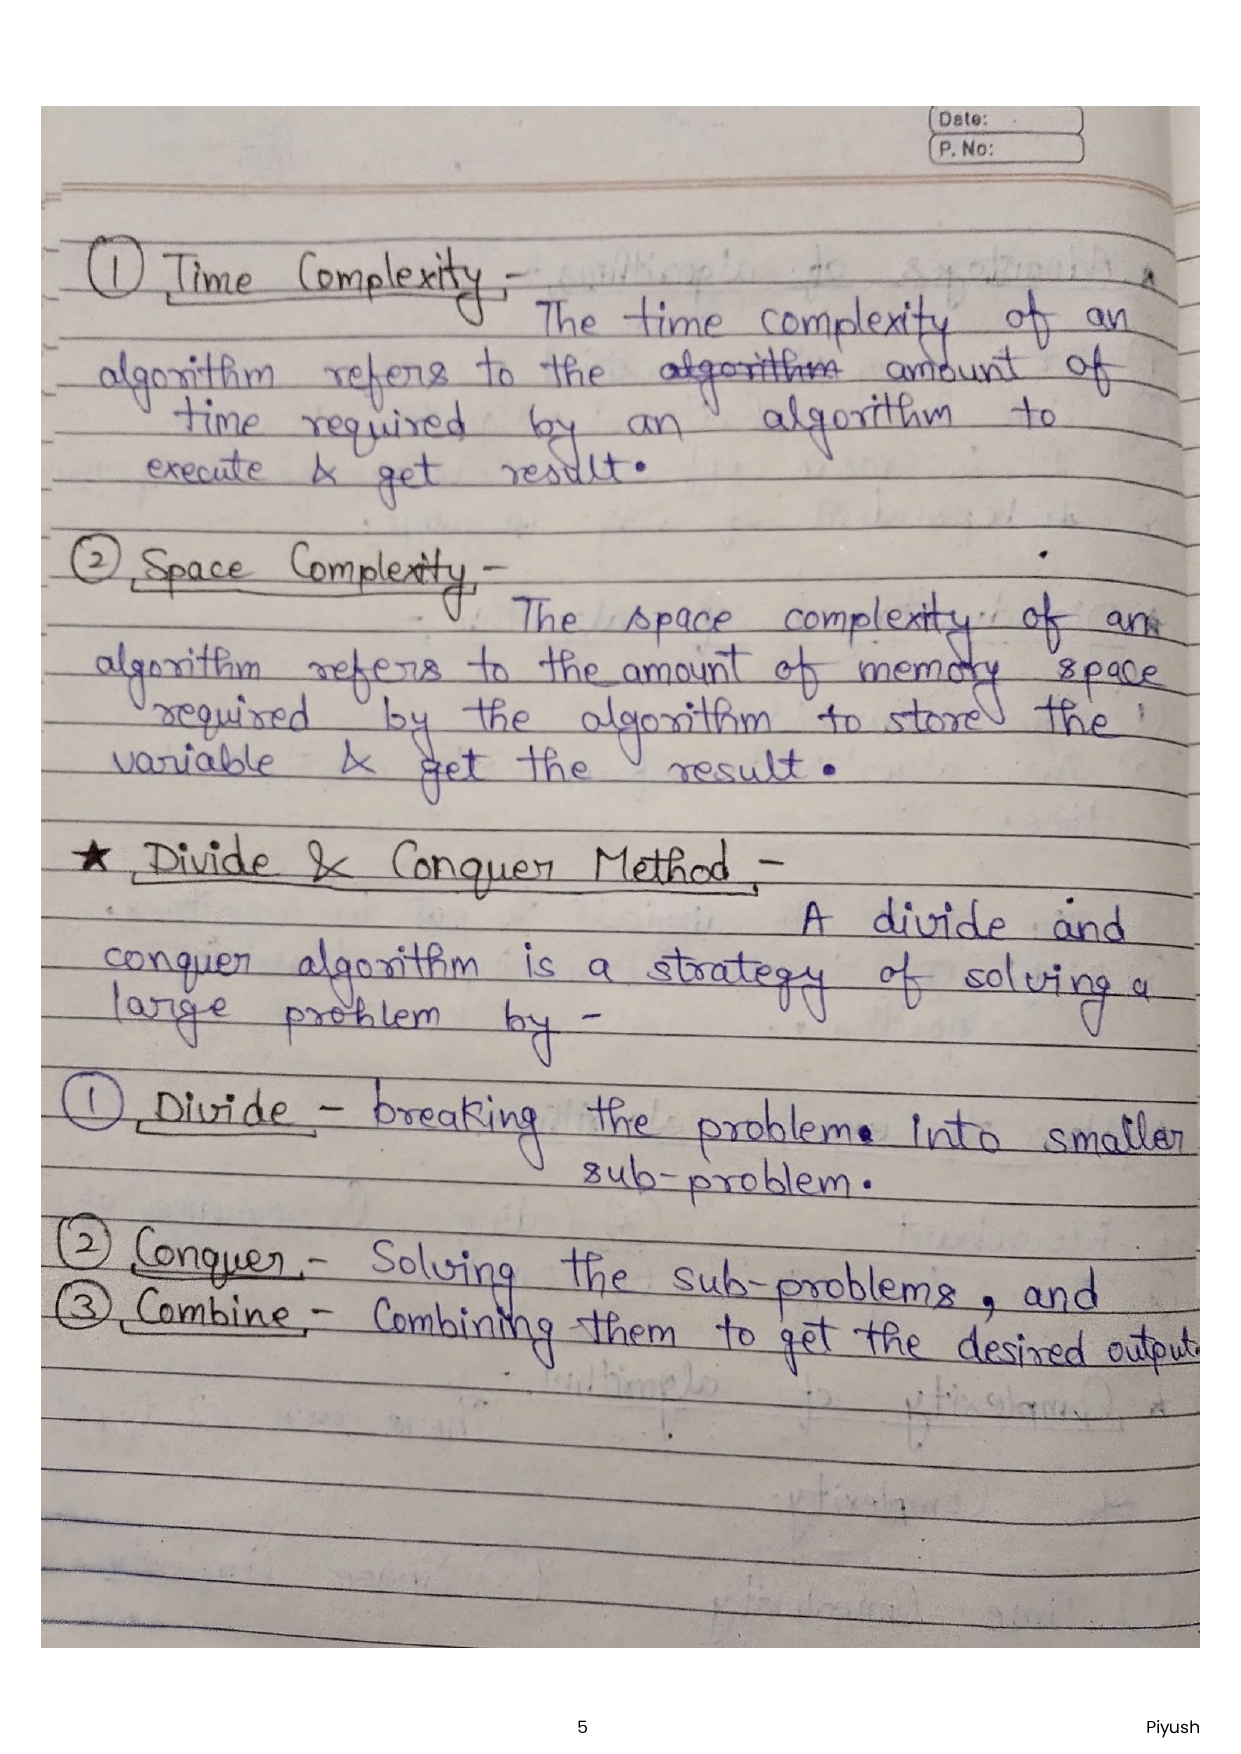 Date:
P. No:
① Time Complexity,-
The time complexity of an
algorithm refers to the algorithm amount of
time required by an algorithm to
execute & get result.
② Space Complexity,-
The space complexity of an
algorithm refers to the amount of memory space
required by the algorithm to store the
variable & get the result.
★ Divide & Conquer Method,-
A divide and
conquer algorithm is a strategy of solving a
large problem by -
① Divide - breaking the problem. into smaller
sub-problem.
② Conquer,- Solving the sub-problems, and
③ Combine,- Combining them to get the desired output.
5
Piyush